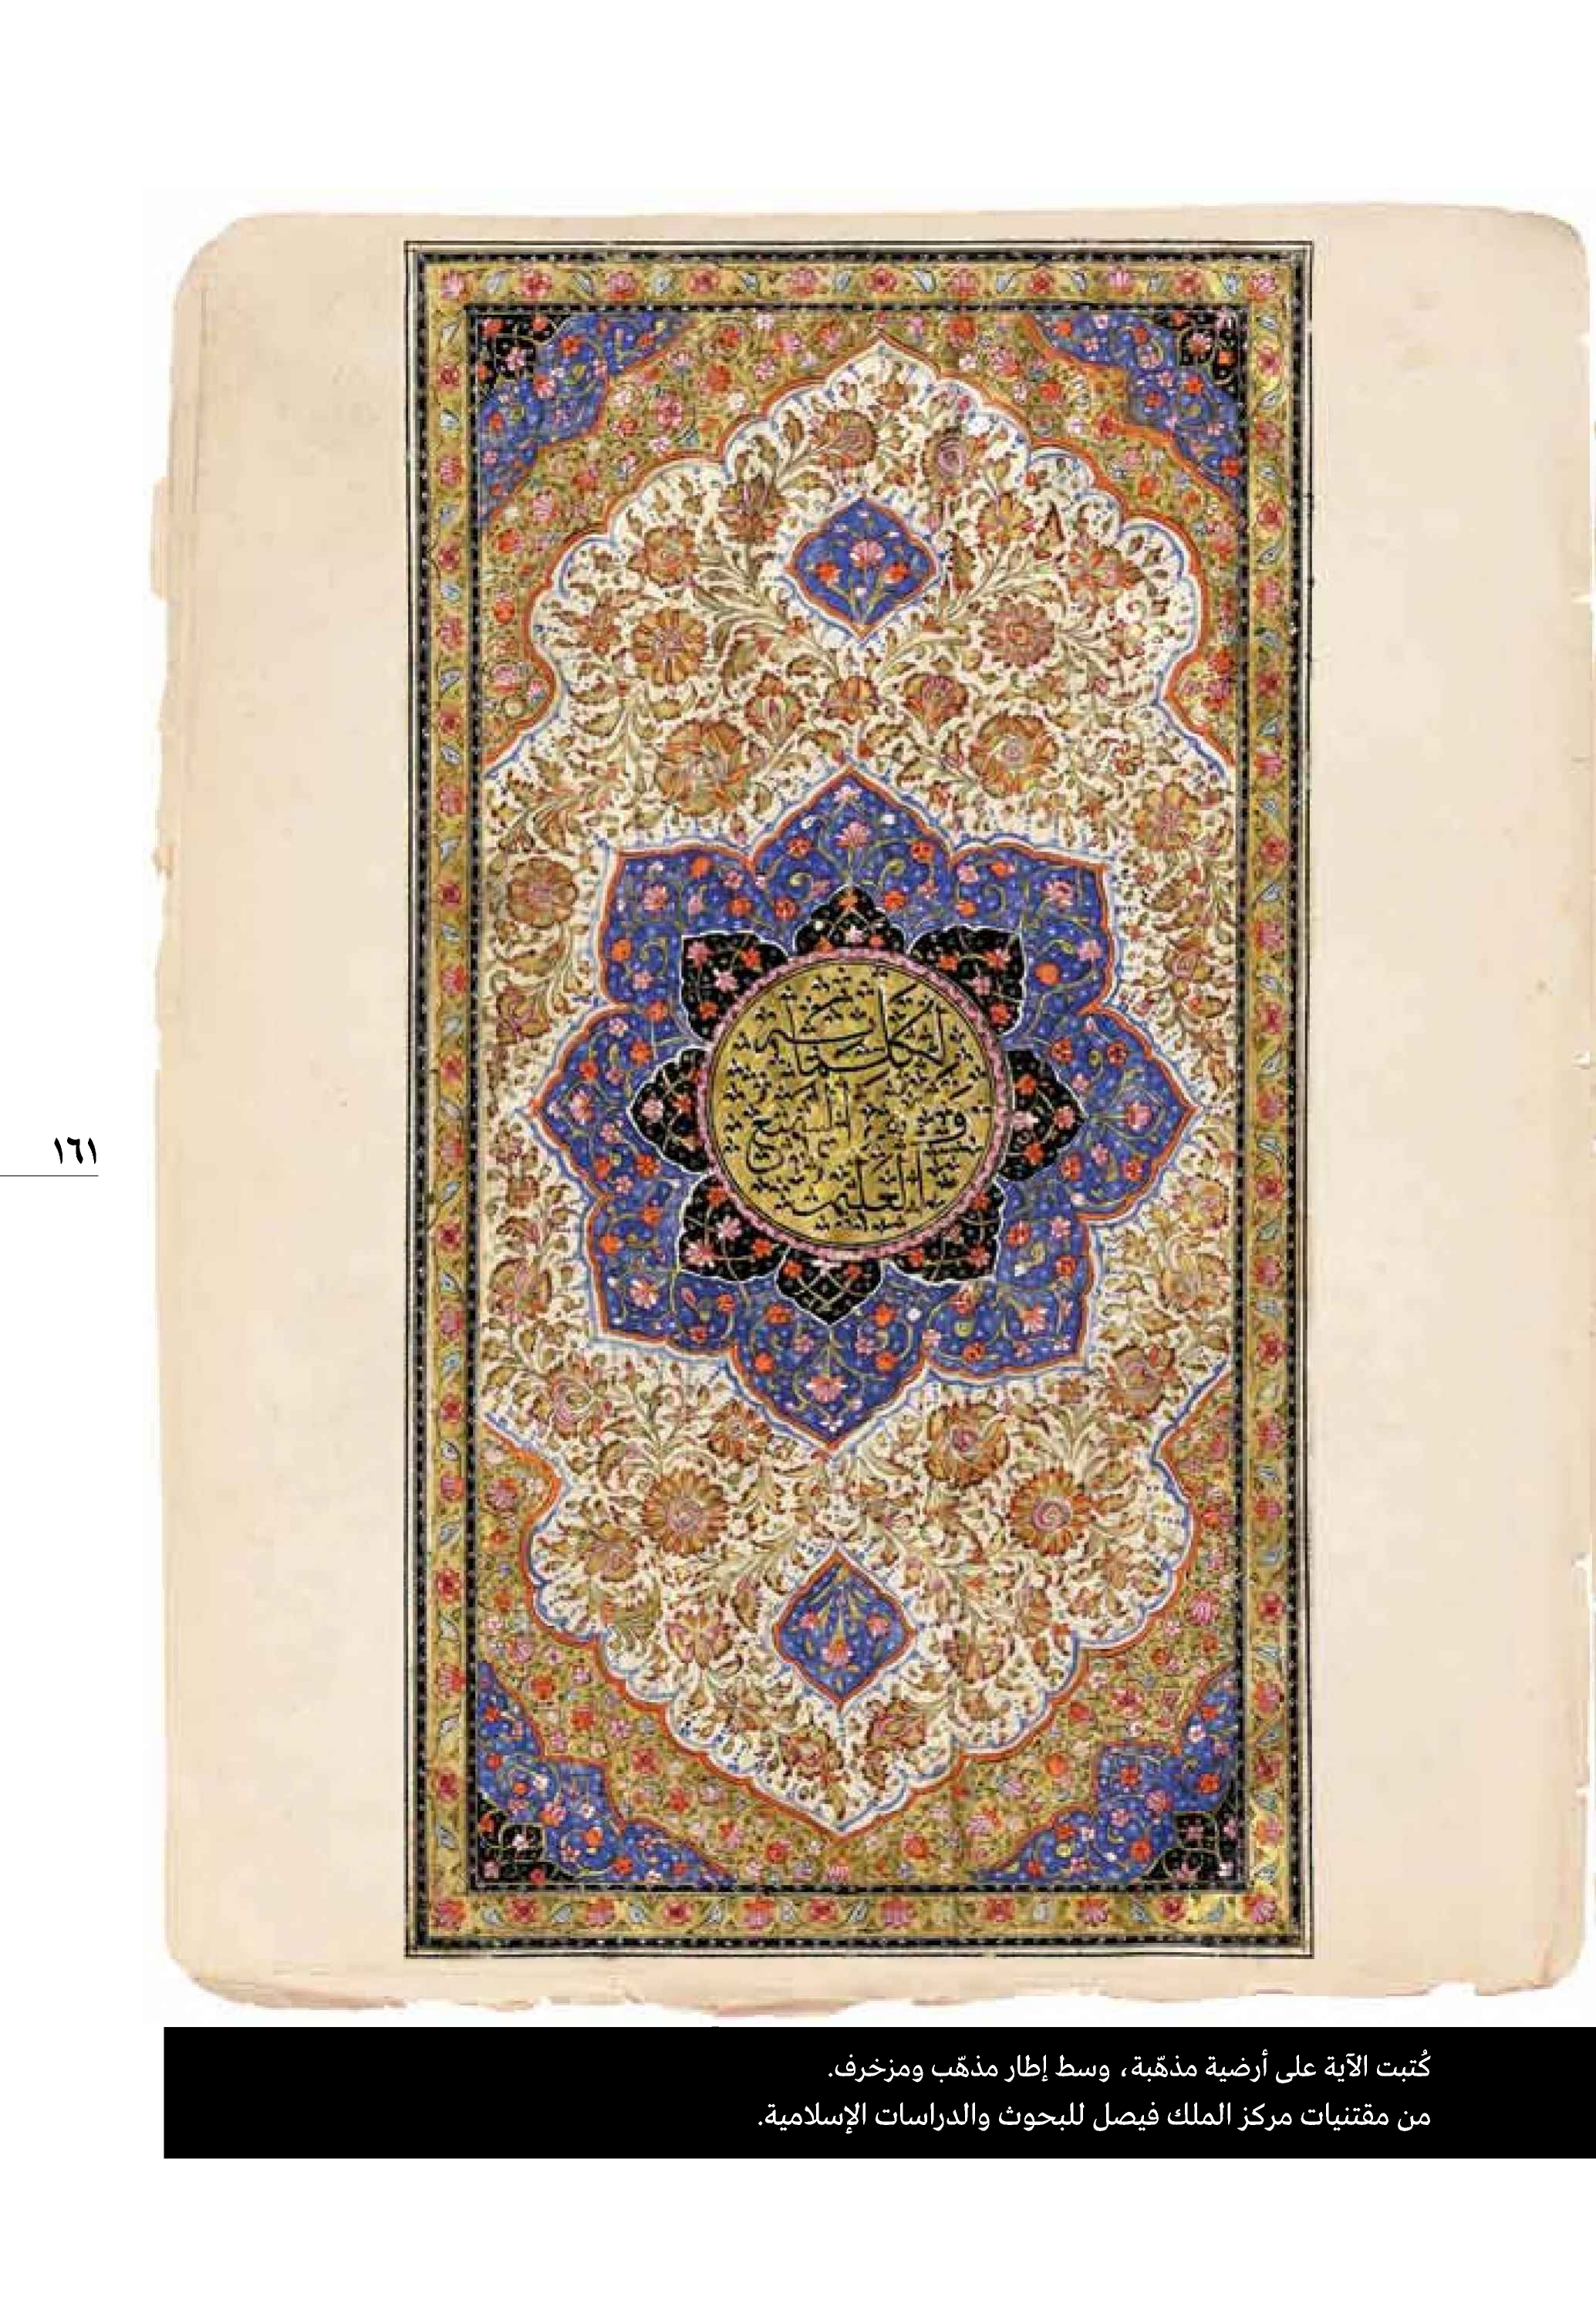 لكلماته
وهو السميع
العليم
١٦١
كُتبت الآية على أرضية مذهّبة، وسط إطار مذهّب ومزخرف.
من مقتنيات مركز الملك فيصل للبحوث والدراسات الإسلامية.